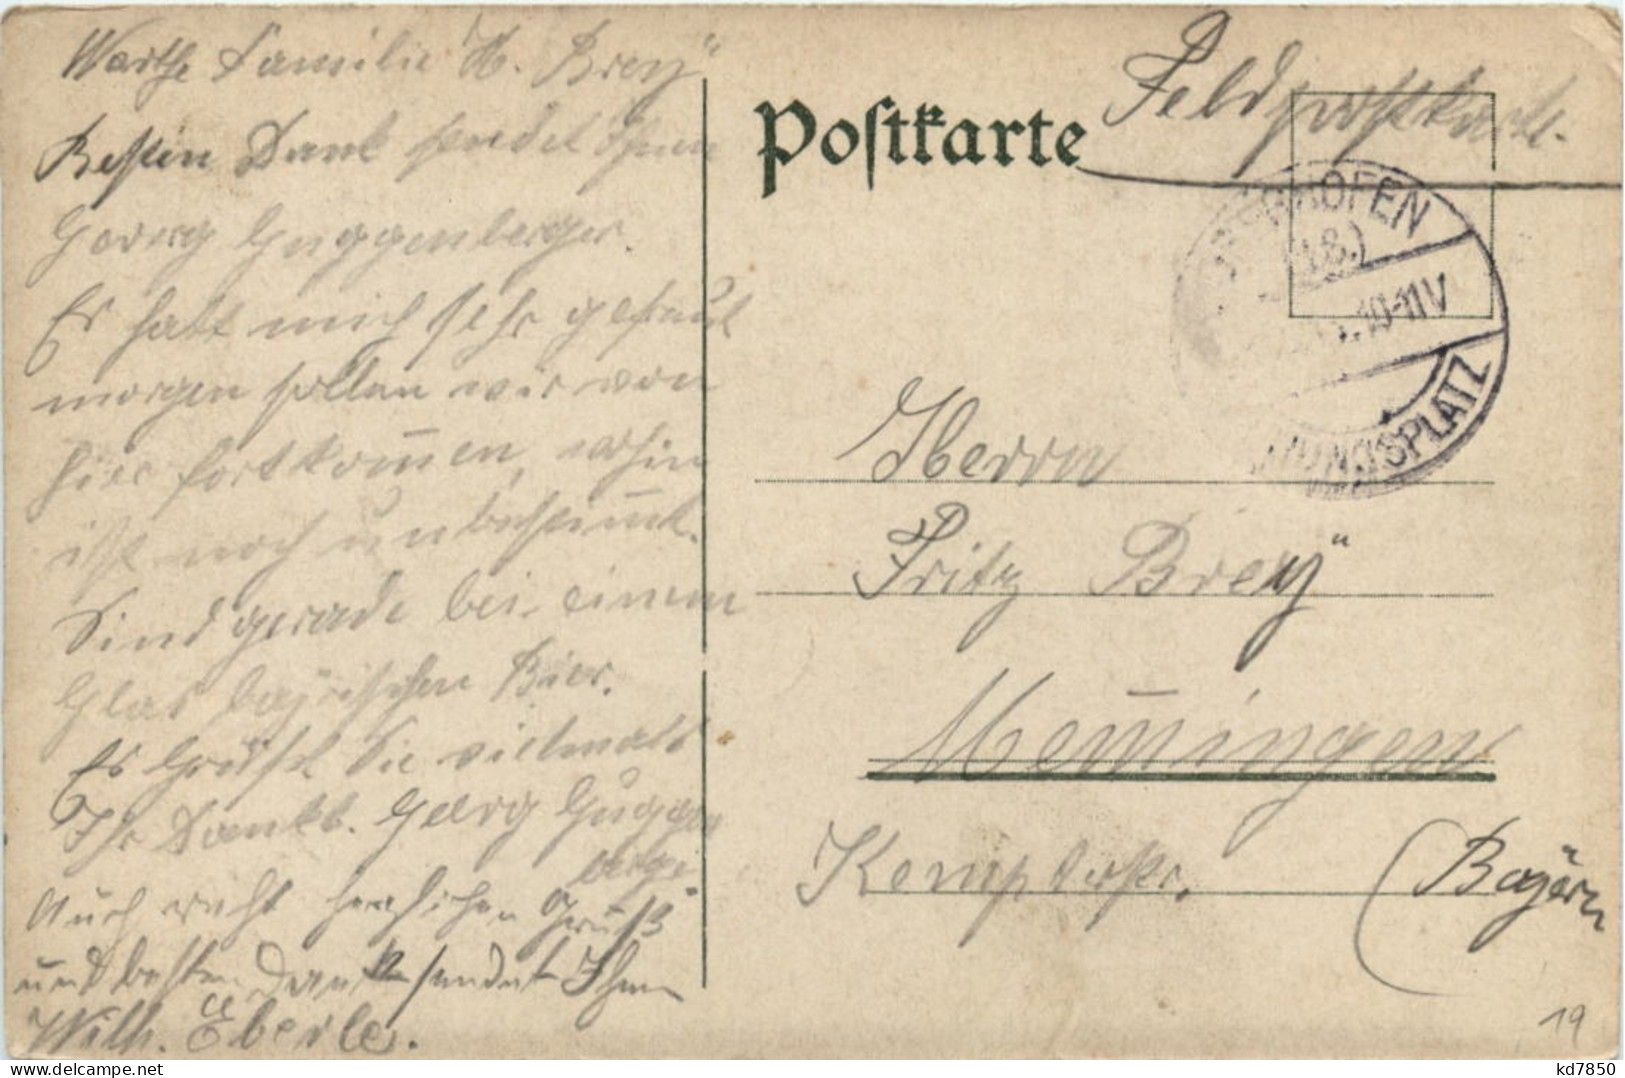 Werthe Familie H. Brey"
Besten Dank sendet Ihnen
Georg Guggenberger.
Es hatt mich sehr gefreut
morgen sollen wir von
hier fortkom̅en, wohin
ist noch unbestim̅t.
Sind gerade bei einem
Glas bayrischen Bier.
Es Grüßt Sie vielmals
Ihr Dankb. Georg Guggen
berger
Auch recht herzlichen Gruß
und besten Dank sendet Ihnen
Wilh. Eberle.
Postkarte
Feldpostkarte.
10-11 V
UNGSPLATZ
Herrn
Fritz Brey"
Mem̅ingen
Kempterstr.
(Bayern
19
kd7850